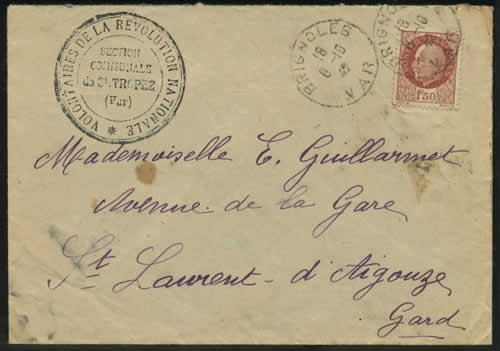 VOLONTAIRES DE LA REVOLUTION NATIONALE
SECTION
COMMUNALE
de St. TROPEZ
(Var)
BRIGNOLES
18 10
VAR
BRIGNO
18
10
1F50
Mademoiselle E. Guillarmet
Avenue de la Gare
St Laurent-d'Aigouze
Gard